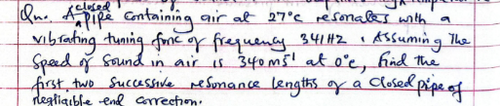 Qn. A closed pipe containing air at 27°c resonates with a
vibrating tuning forc of frequency 341HZ. Assuming The
Speed of Sound in air is 340ms⁻¹ at 0°c, find the
first two Successive resonance lengths of a closed pipe of
negligible end correction.